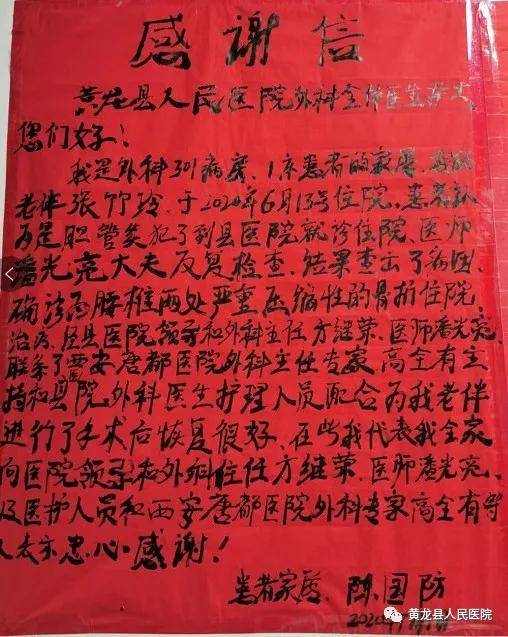 感谢信
黄龙县人民医院外科全体医生护士
您们好！
我是外科301病房、1床患者的家属、我的
老伴张竹玲、于2020年6月13号住院、患者认
为是胆管炎犯了到县医院就诊住院、医师
潘光亮大夫反复检查、结果查出了病因、
确诊为腰椎两处严重压缩性的骨折住院
治疗、经县医院领导和外科主任方继荣、医师潘光亮、
联系了西安唐都医院外科主任专家高全有主
持和县院外科医生护理人员配合为我老伴
进行了手术后恢复很好、在些我代表我全家
向医院领导和外科住任方继荣、医师潘光亮、
及医护人员和西安唐都医院外科专家高全有等
人表示忠心感谢！
患者家属、陈国防
2020年
黄龙县人民医院